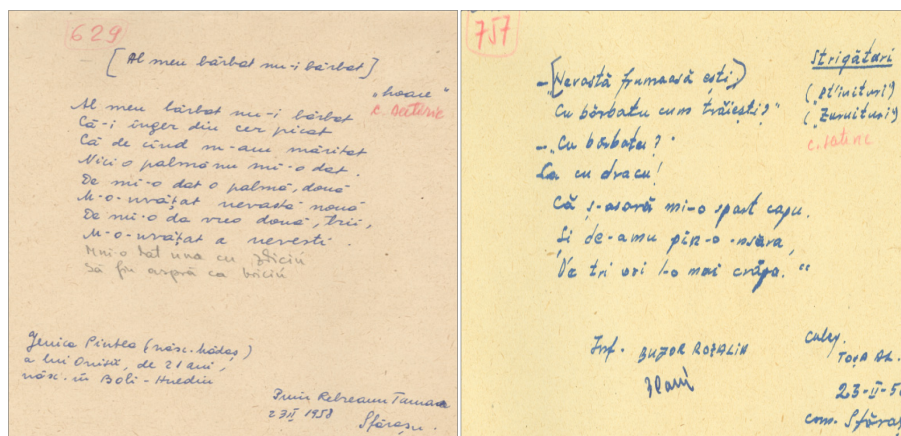 629
[Al meu bărbat nu-i bărbat]
"hoace"
Al meu bărbat nu-i bărbat
Că-i înger din cer picat
Că de cînd m-am măritat
Nici o palmă nu mi-o dat.
De mi-o dat o palmă, două
M-o-nvățat nevastă nouă
De mi-o da vreo două, trii,
M-o-nvățat a nevesti.
Mni-o dat una cu
Să fiu aspră ca briciu
Jenica Pintea (născ. hădaș)
a lui Onisă, de 21 ani,
născ. în Boli - Huedin
Rebreanu Tamara
23 II 1958
Sfărașu.
757
Strigături
("Țîipituri")
("Zuruituri")
c. satiric
- [Nevastă frumoasă ești]
Cu bărbatu cum trăiești?"
- "Cu bărbatu?
Ca cu dracu!
Că ș-asară mi-o spart capu.
Și de-amu pîn-o-nsăra,
De tri ori l-o mai crăpa."
Inf. BUZOR ROZALIA
31 ani
culeg.
TOȘA AL.
23-II-5
com. Sfăraș